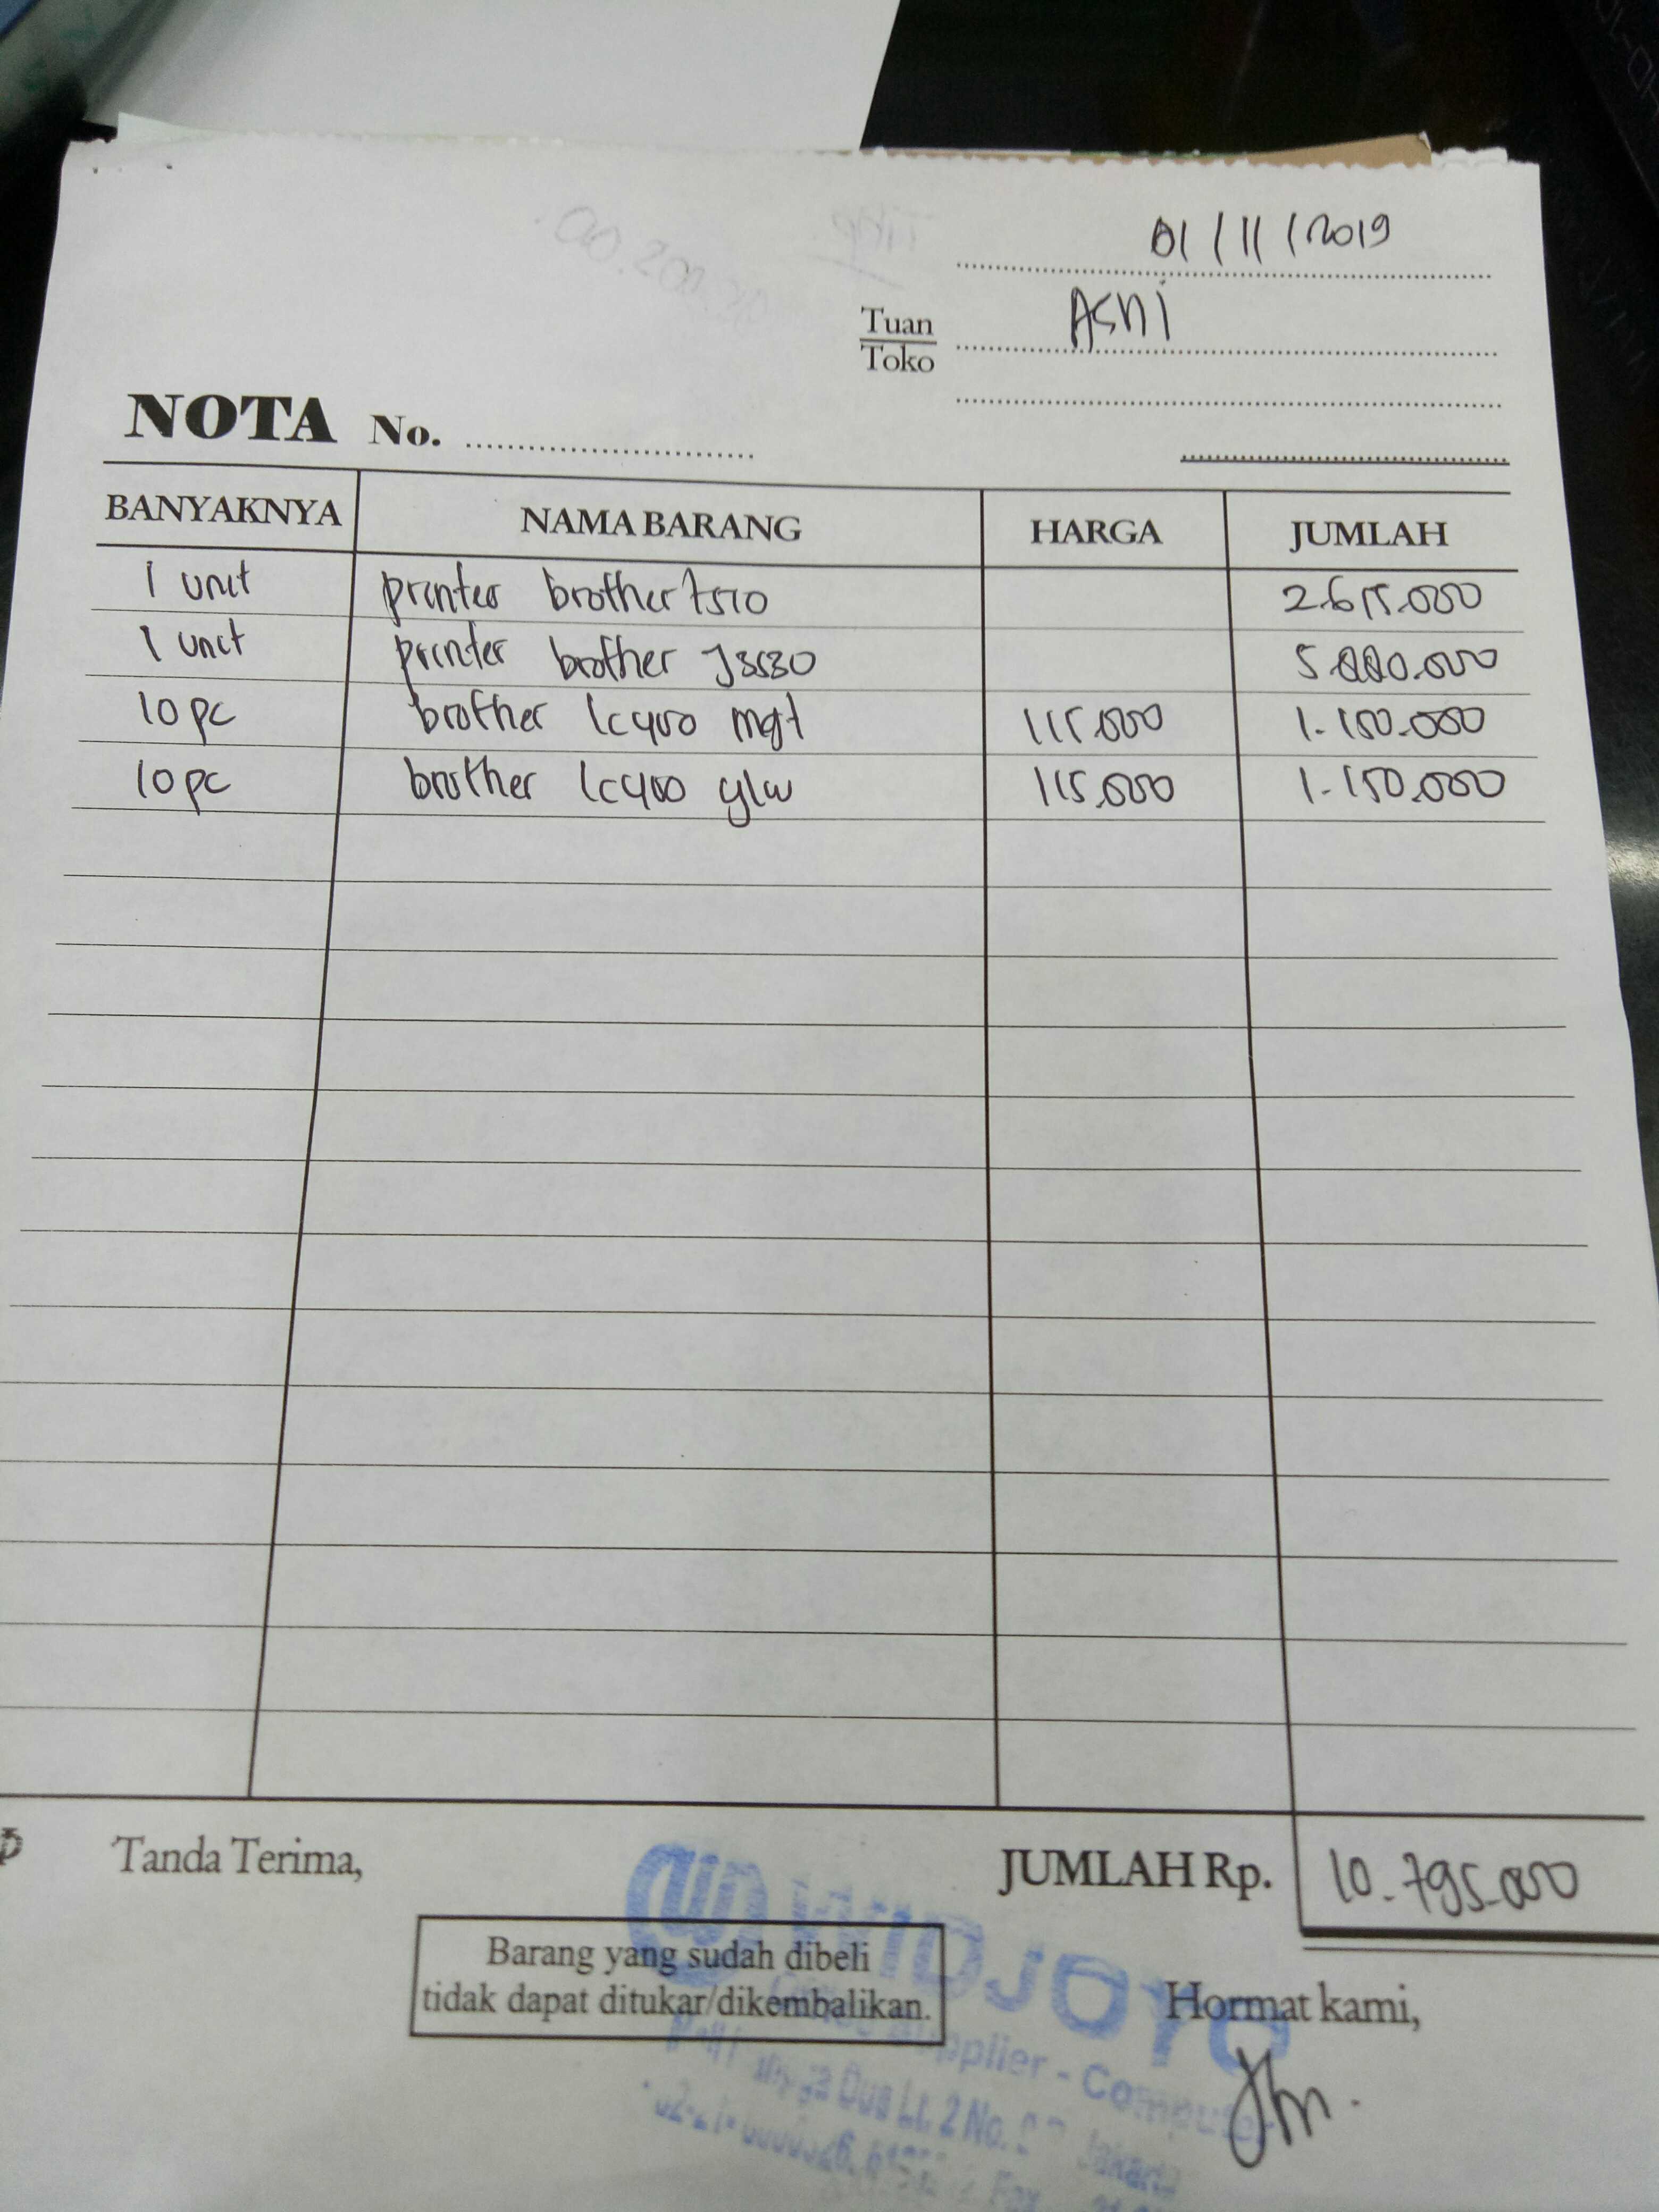 01/11/2019
Tuan
Toko
Asni
NOTA No.
BANYAKNYA NAMA BARANG HARGA JUMLAH
1 unit printer brother t510 2.615.000
1 unit printer brother J3530 5.880.000
10 pc brother lc400 mgt 115.000 1.150.000
10 pc brother lc400 ylw 115.000 1.150.000
Tanda Terima, JUMLAH Rp. 10.795.000
Barang yang sudah dibeli
tidak dapat ditukar/dikembalikan.
Hormat kami,
WIDJOYO
Supplier - Computer
Dua Lt. 2 No. Jakarta
Fax